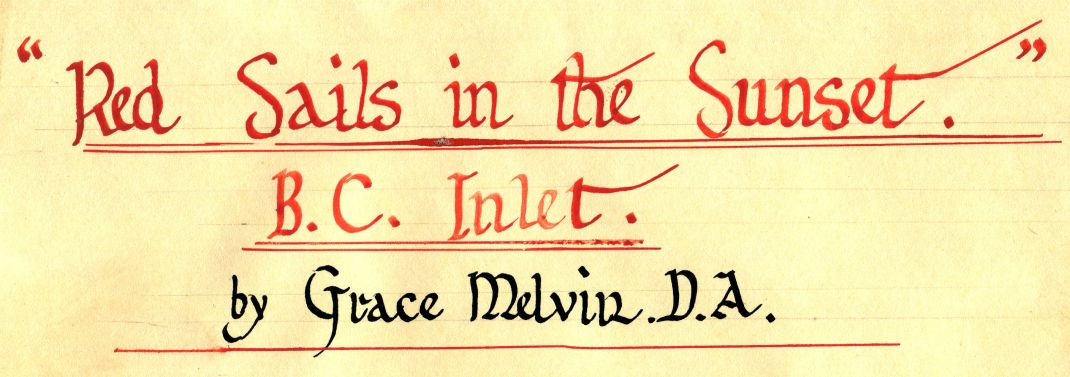 “Red Sails in the Sunset.”
B.C. Inlet.
by Grace Melvin. D.A.